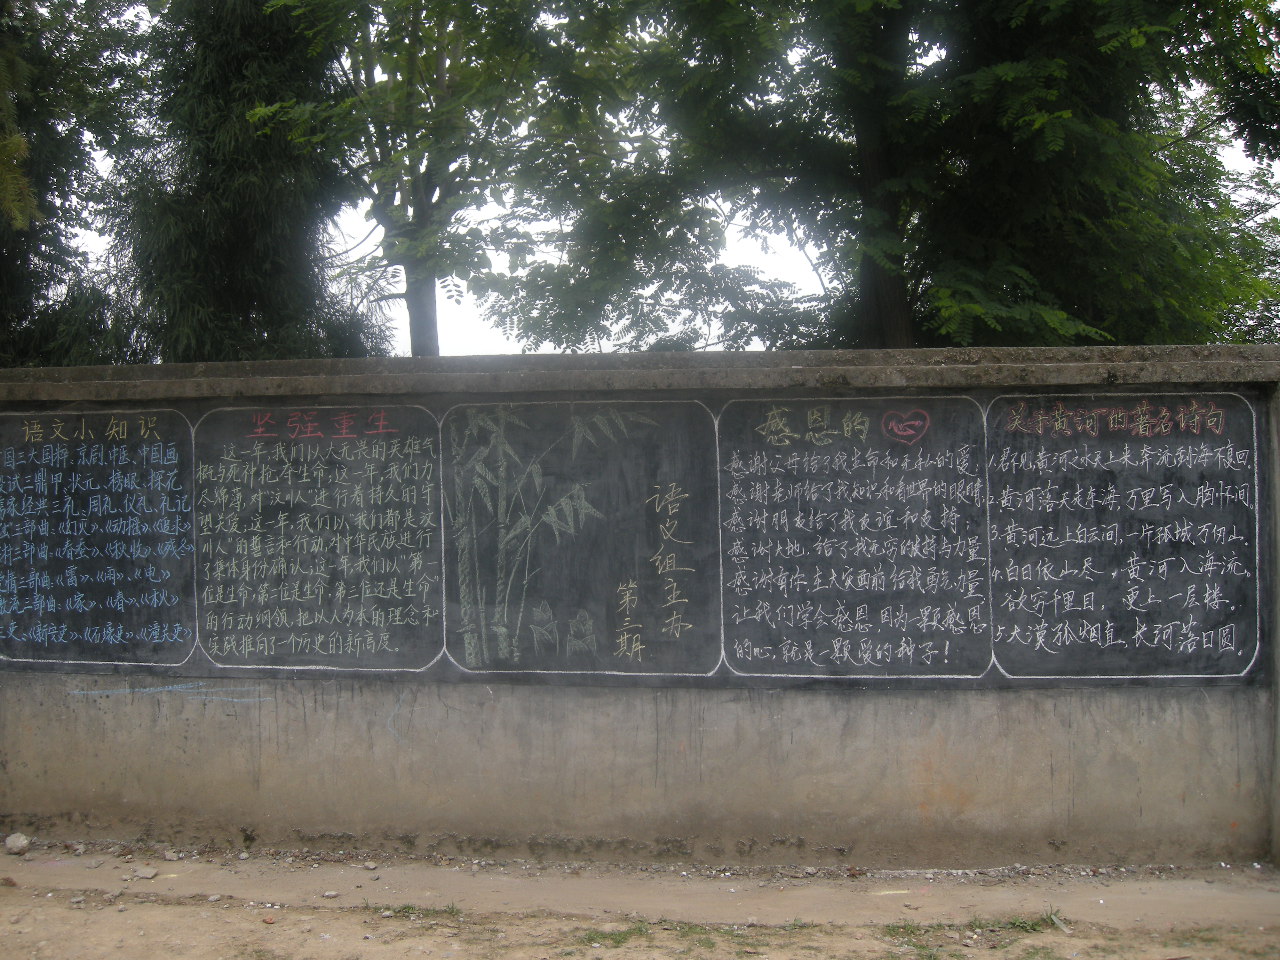 语文小知识
国三大国粹、京剧、中医、中国画
试三鼎甲、状元、榜眼、探花
儒家经典三礼、周礼、仪礼、礼记
三部曲、《幻灭》、《动摇》、《追求》
三部曲、《春蚕》、《秋收》、《残冬》
爱情三部曲、《雾》、《雨》、《电》
激流三部曲、《家》、《春》、《秋》
三吏、《新安吏》、《石壕吏》、《潼关吏》
坚强重生
这一年,我们以大无畏的英雄气
概与死神抢夺生命;这一年,我们力
尽绵薄,对“汶川人”进行着持久的守
望关爱;这一年,我们以“我们都是汶
川人”的誓言和行动,对中华民族进行
了集体身份确认;这一年,我们以“第一
位是生命,第二位是生命,第三位还是生命”
的行动纲领,把以人为本的理念和
实践推向了一个历史的新高度。
语文组主办
第三期
感恩的心
感谢父母给了我生命和无私的爱;
感谢老师给了我知识和看世界的眼睛;
感谢朋友给了我友谊和支持;
感谢大地,给了我无穷的支持与力量
感谢有你,在大灾面前给我勇气、力量
让我们学会感恩 因为一颗感恩
的心,就是一颗爱的种子!
关于黄河的著名诗句
1.君不见黄河之水天上来,奔流到海不复回。
2.黄河落天走东海,万里写入胸怀间。
3.黄河远上白云间,一片孤城万仞山。
4.白日依山尽,黄河入海流。
欲穷千里目,更上一层楼。
5.大漠孤烟直,长河落日圆。